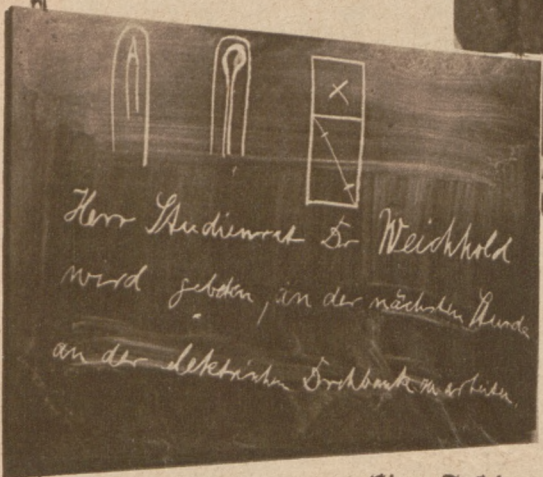 Herr Studienrat Dr Weichhold
wird gebeten, in der nächsten Stunde
an der elektrischen Drehbank zu arbeiten.